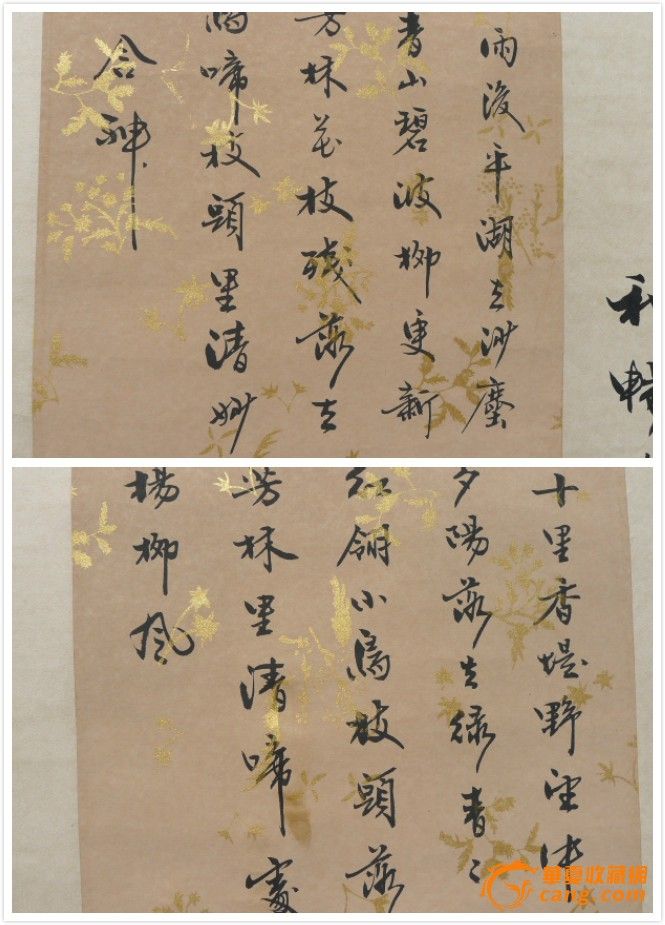 雨後平湖去沙塵
青山碧波柳更新
芳林花枝殘落去
啼枝頭里清妙
合神
十里香堤野望
夕陽落去綠青〻
紅翎小鳥枝頭落
芳林里清啼處
楊柳風
華夏收藏網
cang.com